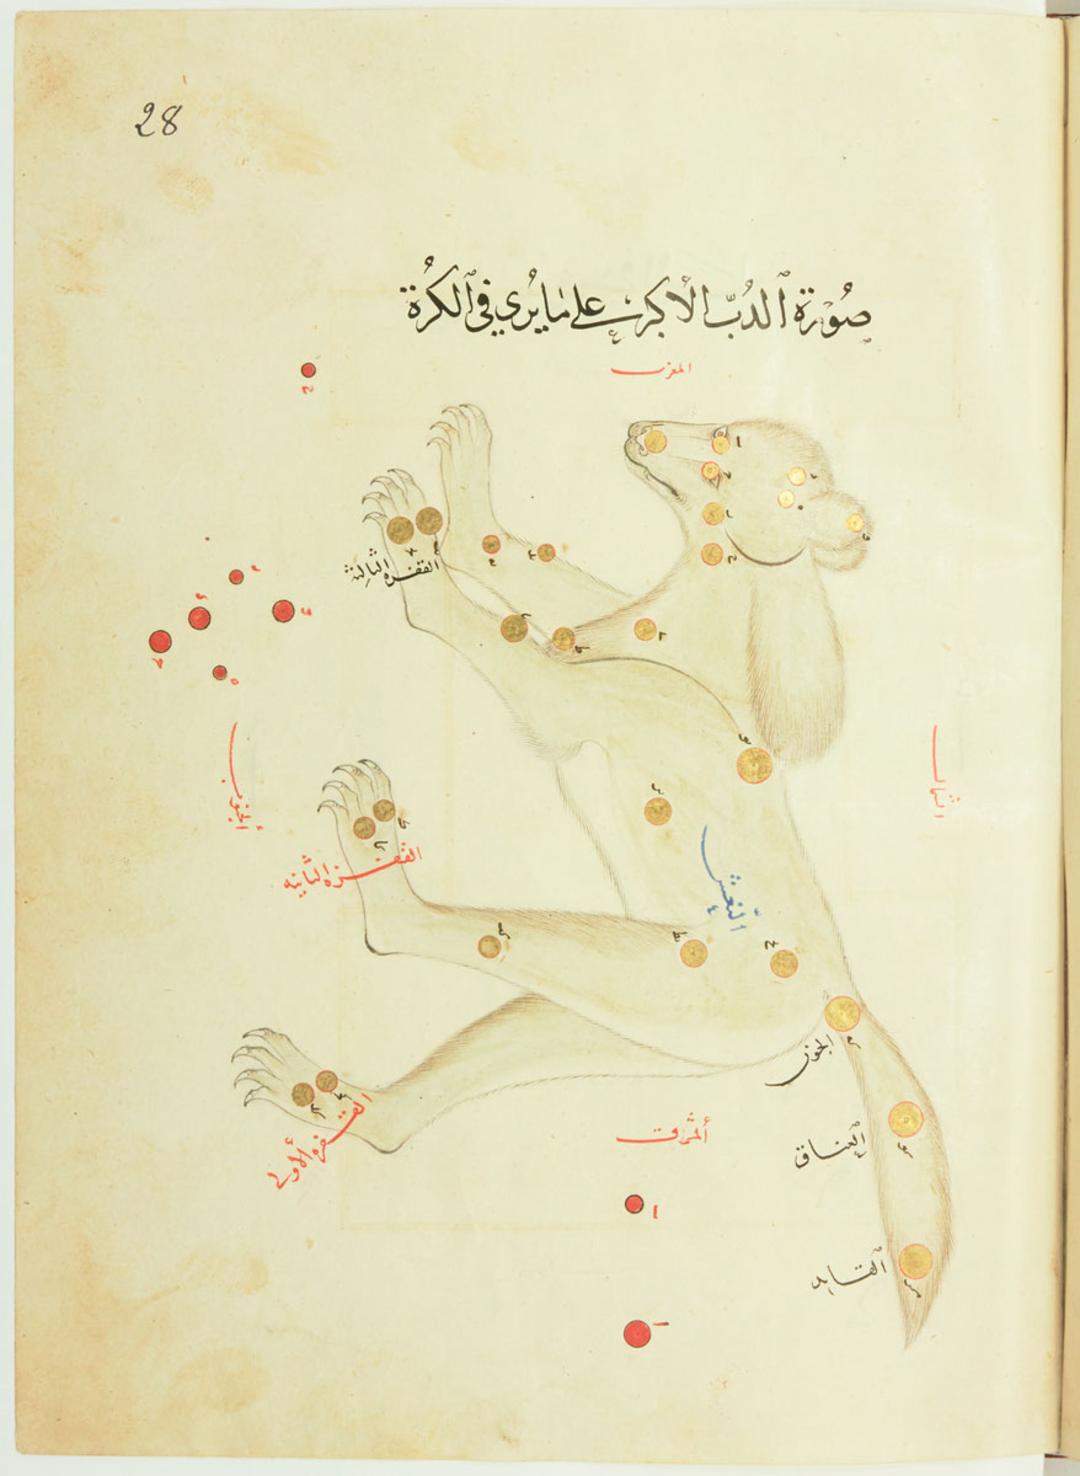 28
صُوۡرَة ٱلدُبّ الأكبر علىٰ مايُرَي في ٱلكُرَة
المغرب
القفزه الثالثة
الجنوب
الشمال
القفزه الثانيه
النعش
الجون
القفزه الأولى
المشرق
العناق
القايد